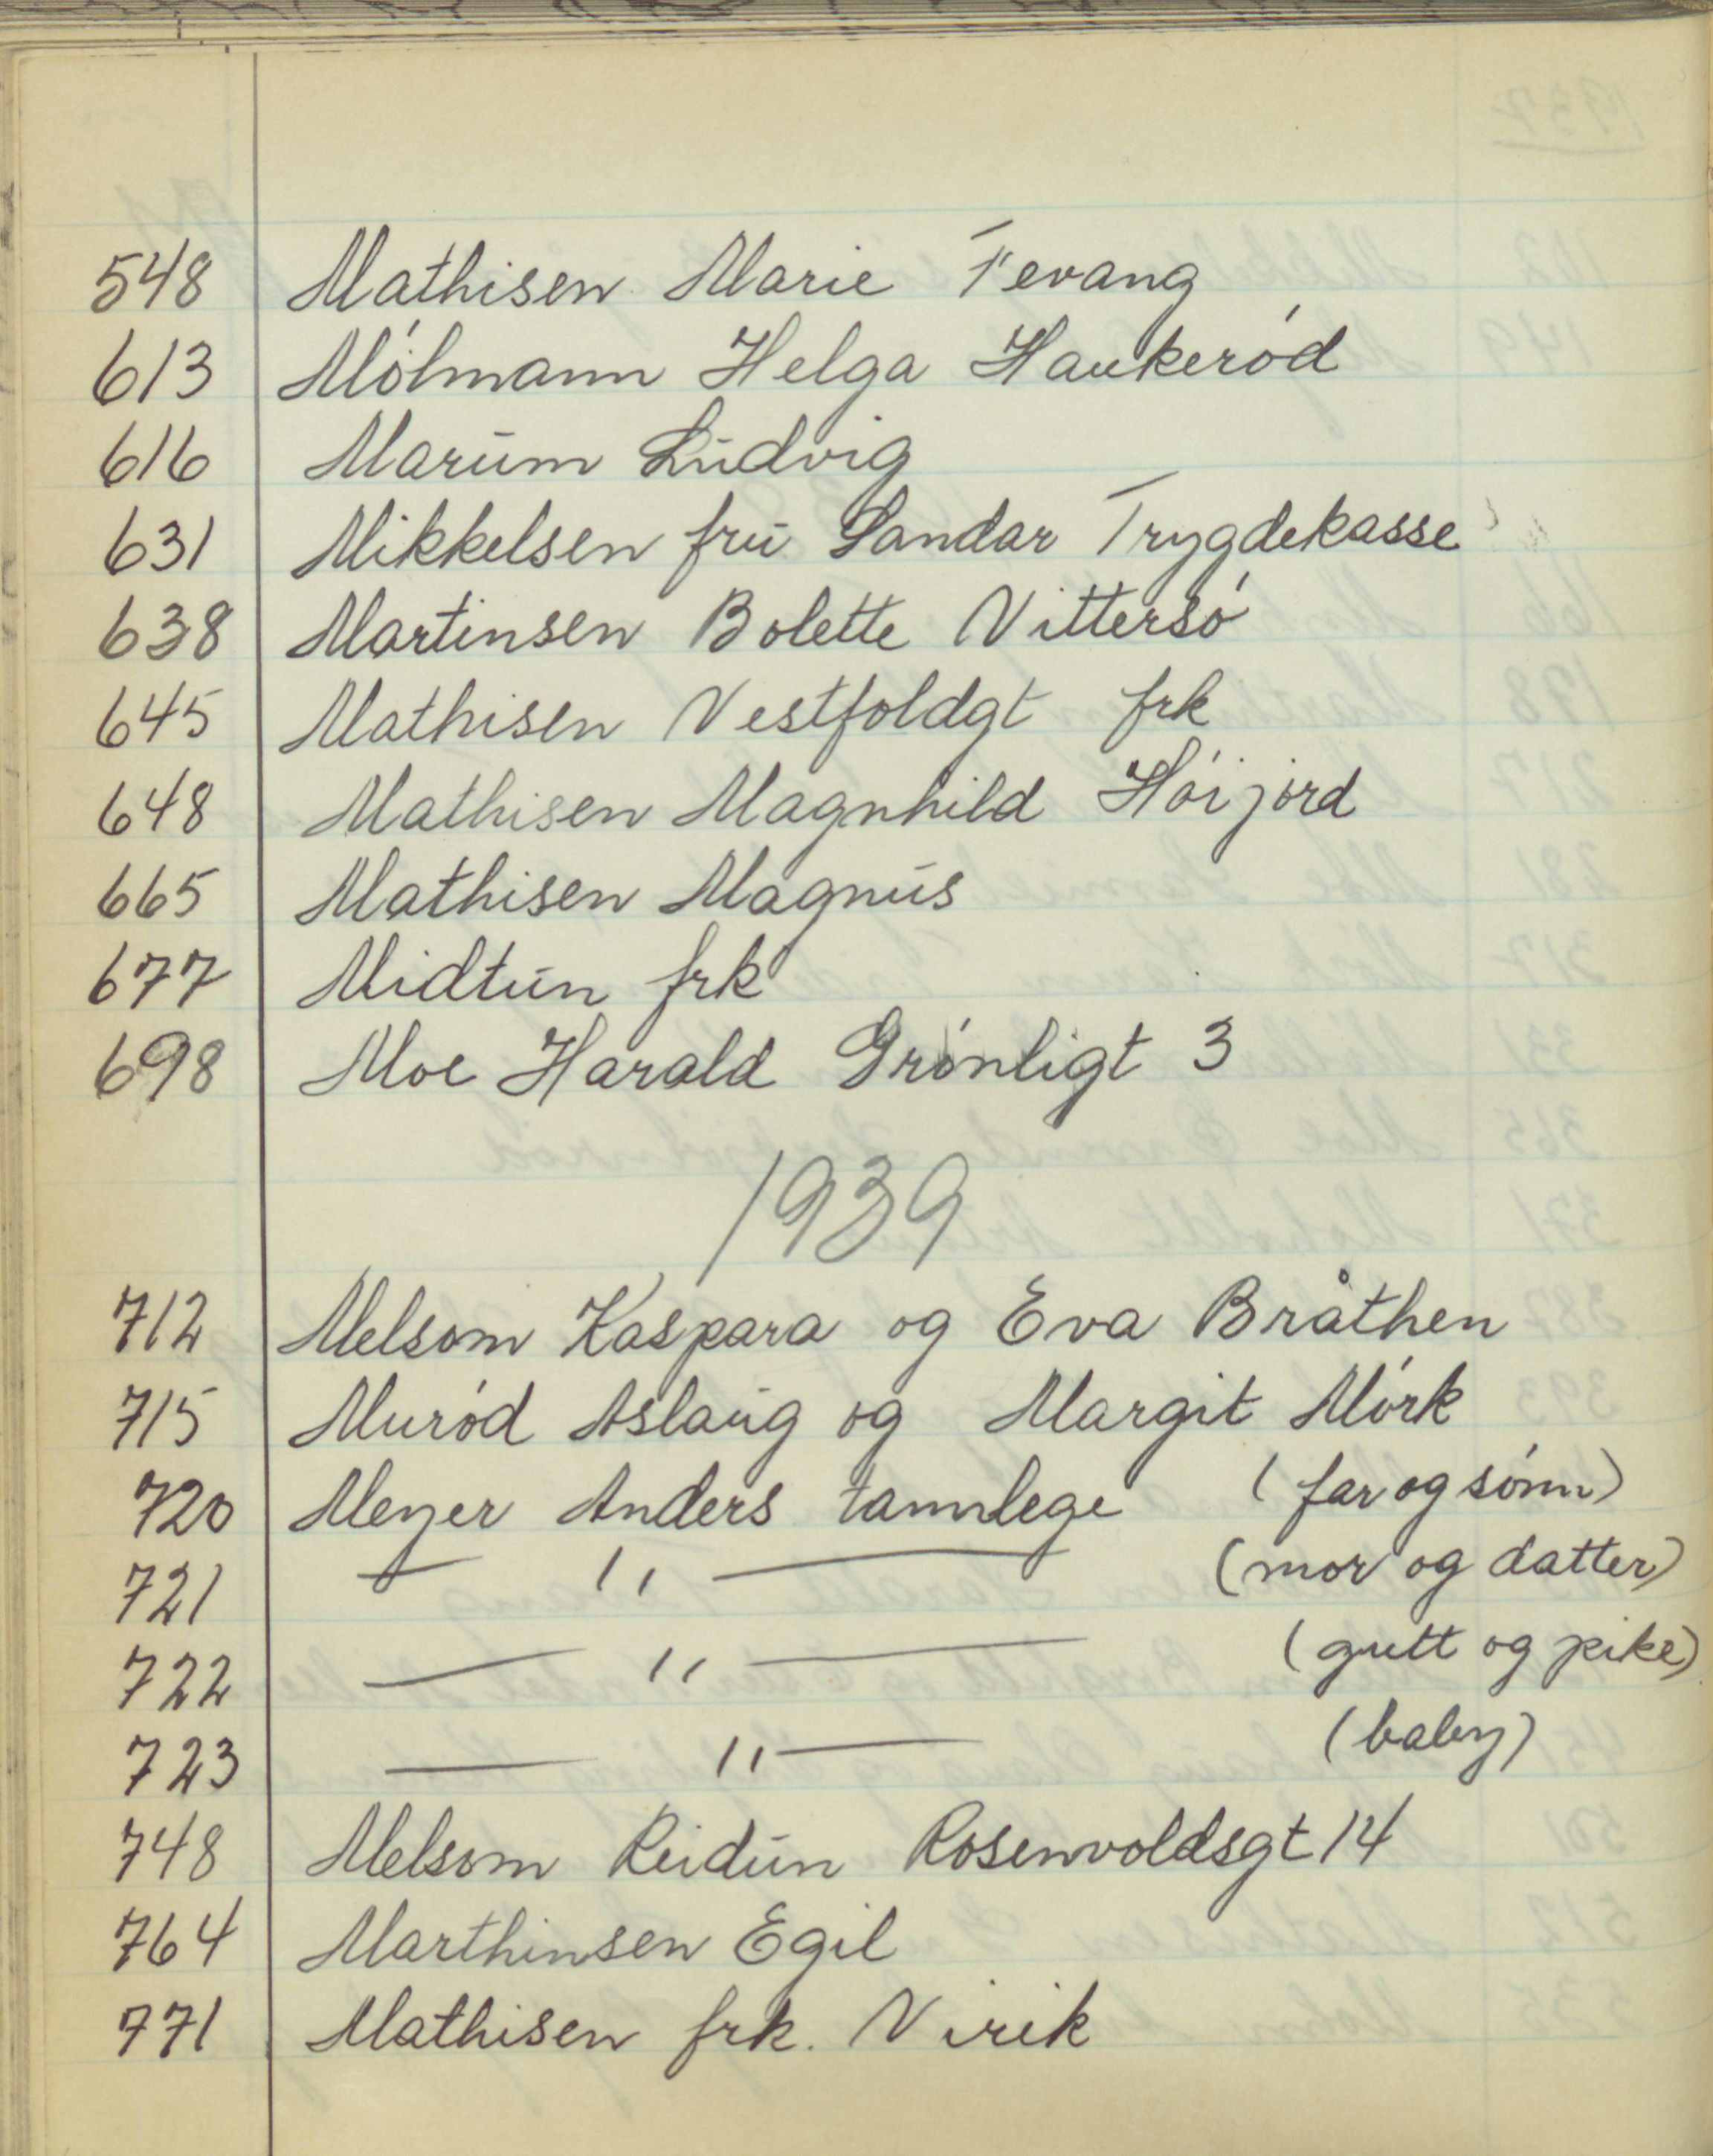 548 Mathisen Marie Fevang
613 Mólmann Helga Haukeród
616 Marum Ludvig
631 Mikkelsen fru Sandar Trygdekasse
638 Martinsen Bolette Vittersó
645 Mathisen Vestfoldgt frk
648 Mathisen Magnhild Hóijord
665 Mathisen Magnus
677 Midtun frk
698 Moe Harald Grónligt 3
1939
712 Melsom Kaspara og Eva Bråthen
715 Muród Aslaug og Margit Mórk
720 Meyer Anders tannlege (far og sónn)
721 — " — (mor og datter)
722 — " — (gutt og pike)
723 — " — (baby)
748 Melsom Reidun Rosenvoldsgt 14
764 Marthinsen Egil
771 Mathisen frk. Virik